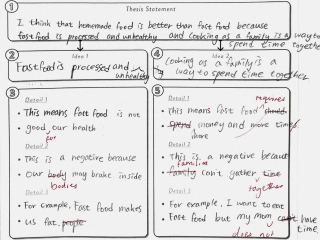 1
Thesis Statement
I think that homemade food is better than fast food because
fast food is processed and unhealthy and cooking as a family is a way to
spend time together
2
Idea 1
Fast food is processed and
unhealthy
4
Idea 2
Cooking as a family is a
way to spend time together
3
Detail 1
This means fast food is not
good our health
for
Detail 2
This is a negative because
Our body may brake inside
bodies
Detail 3
For example, Fast food makes
us fat people
5
Detail 1
requires
This means fast food should
spend money and more time
share
Detail 2
This is a negative because
families
family can't gather time
together
Detail 3
For example, I want to eat
Fast food but my mom can't have
does not
time.